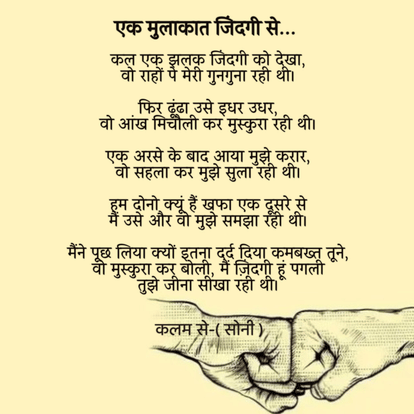 एक मुलाकात जिंदगी से...
कल एक झलक जिंदगी को देखा,
वो राहों पे मेरी गुनगुना रही थी।
फिर ढूंढा उसे इधर उधर,
वो आंख मिचौली कर मुस्कुरा रही थी।
एक अरसे के बाद आया मुझे करार,
वो सहला कर मुझे सुला रही थी।
हम दोनो क्यूं हैं खफा एक दूसरे से
मैं उसे और वो मुझे समझा रही थी।
मैंने पूछ लिया क्यों इतना दर्द दिया कमबख्त तूने,
वो मुस्कुरा कर बोली, मैं ज़िदगी हूं पगली
तुझे जीना सीखा रही थी।
कलम से-( सोनी )